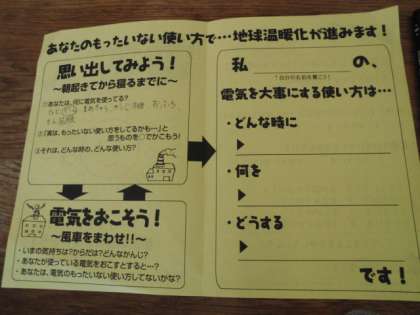 あなたのもったいない使い方で…地球温暖化が進みます！
思い出してみよう！
～朝起きてから寝るまでに～
①あなたは、何に電気を使ってる？
②「実は、もったいない使い方をしてるかも…」と
思うものを○でかこもう！
③それは、どんな時の、どんな使い方？
電気をおこそう！
～風車をまわせ!!～
・いまの気持ちは？からだは？どんなかんじ？
・あなたが使っている電気をおこすとすると…？
・あなたは、電気のもったいない使い方してないかな？
私 の、
電気を大事にする使い方は…
・どんな時に
・何を
・どうする
です！